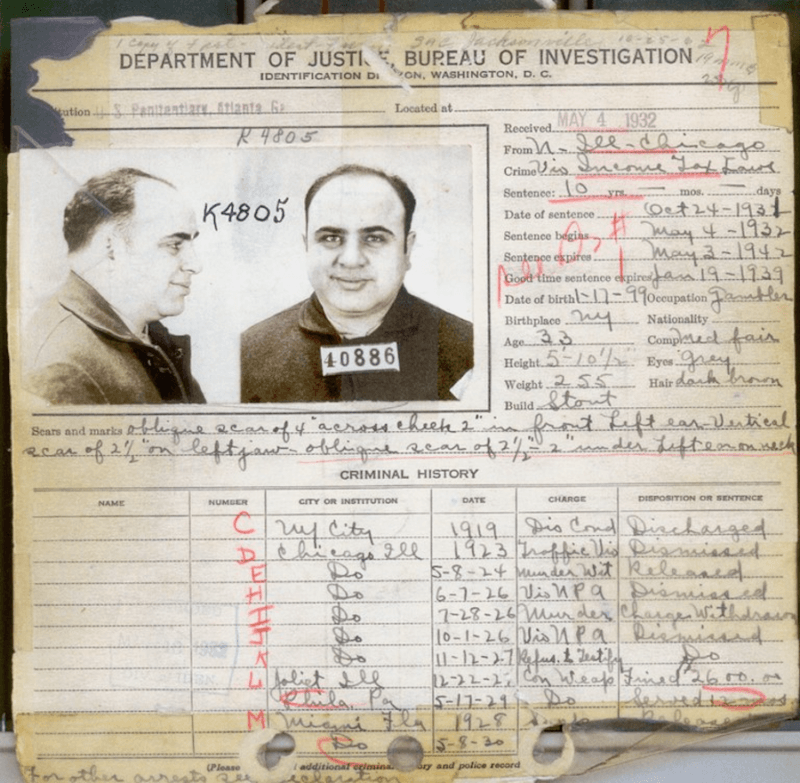 1 copy of
Jacksonville 10-25-
DEPARTMENT OF JUSTICE, BUREAU OF INVESTIGATION
IDENTIFICATION WASHINGTON, D. C.
S Penitentiary, Atlanta Ga Located at
K 4805
K4805
40886
Received MAY 4 1932
From N- Ill-Chicago
Crime Vio Income Tax Laws
Sentence: 10 yrs. — mos. — days
Date of sentence Oct 24-1931
Sentence begins May 4-1932
Sentence expires May 3-1942
Good time sentence expires Jan 19-1939
Date of birth 1-17-99 Occupation Gambler
Birthplace NY Nationality
Age 33 Comp Med fair
Height 5-10½" Eyes Grey
Weight 255 Hair dark brown
Build Stout
Scars and marks oblique scar of 4" across cheek 2" in front Left ear-Vertical
scar of 2½" on left jaw- oblique scar of 2½"- 2" under Left ear on neck
CRIMINAL HISTORY
NAME NUMBER CITY OR INSTITUTION DATE CHARGE DISPOSITION OR SENTENCE
C NY City 1919 Dis Cond Discharged
D Chicago Ill 1923 Traffic Vio Dismissed
E Do 5-8-24 Murder Wit Released
Do 6-7-26 Vio NPA Dismissed
H Do 7-28-26 Murder Charge Withdrawn
Do 10-1-26 Vio NPA Dismissed
K Do 11-12-27 Refus. to Testify Do
L Joliet Ill 12-22-2 Con Weap Fined 2600.00
Phila. Pa 5-17-29 Do Served 12 mos
M Miami Fla 1928 Released
Do 5-8-30
(Please additional criminal and police record
For other arrests see